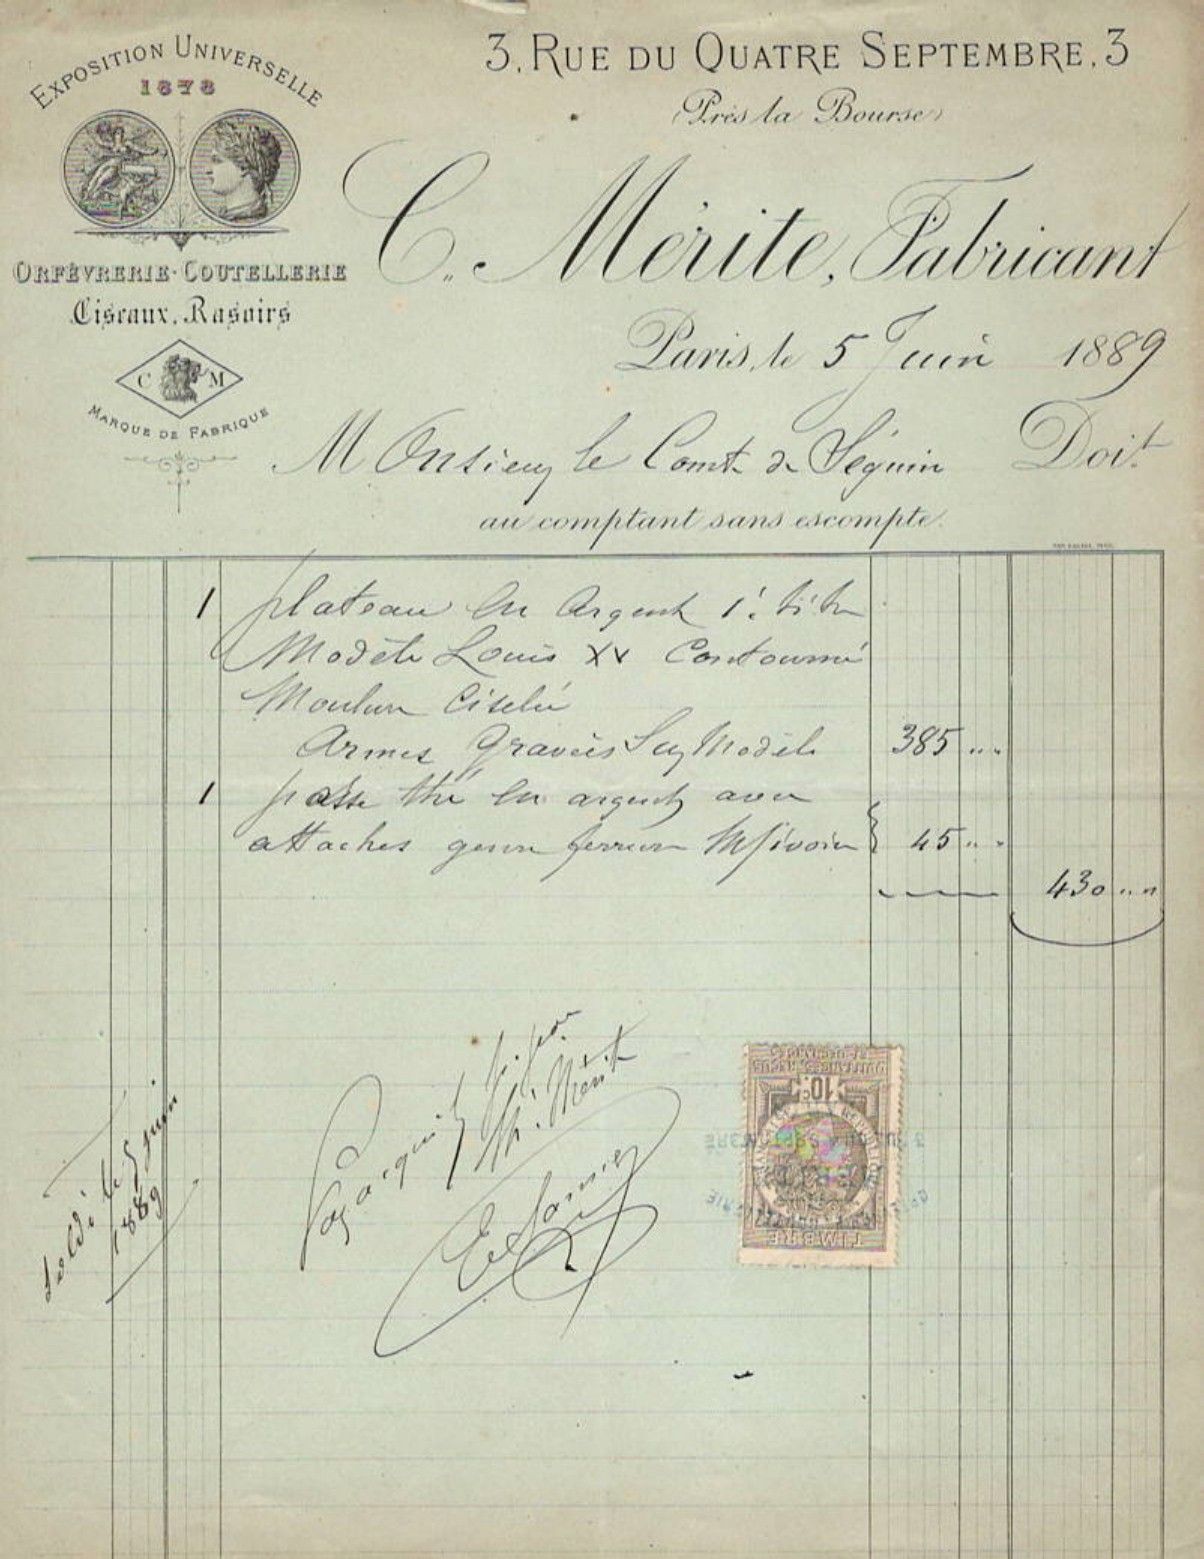 EXPOSITION UNIVERSELLE
1878
ORFÈVRERIE-COUTELLERIE
Ciseaux, Rasoirs
C M
MARQUE DE FABRIQUE
3, RUE DU QUATRE SEPTEMBRE, 3
(Près la Bourse)
C. Mérite, Fabricant
Paris, le 5 Juin 1889
Monsieur le Comte de Séguin Doit
au comptant sans escompte.
1 plateau en argent 1. titre
Modèle Louis XV Contourné
Moulure Ciselée
Armes gravées Sur Modèle 385 " "
1 passe thé en argent avec
attaches genre ivoire 45 " "
430 " "
Soldé le 5 juin
1889
Pour acquit
Mérite
10c
TIMBRE